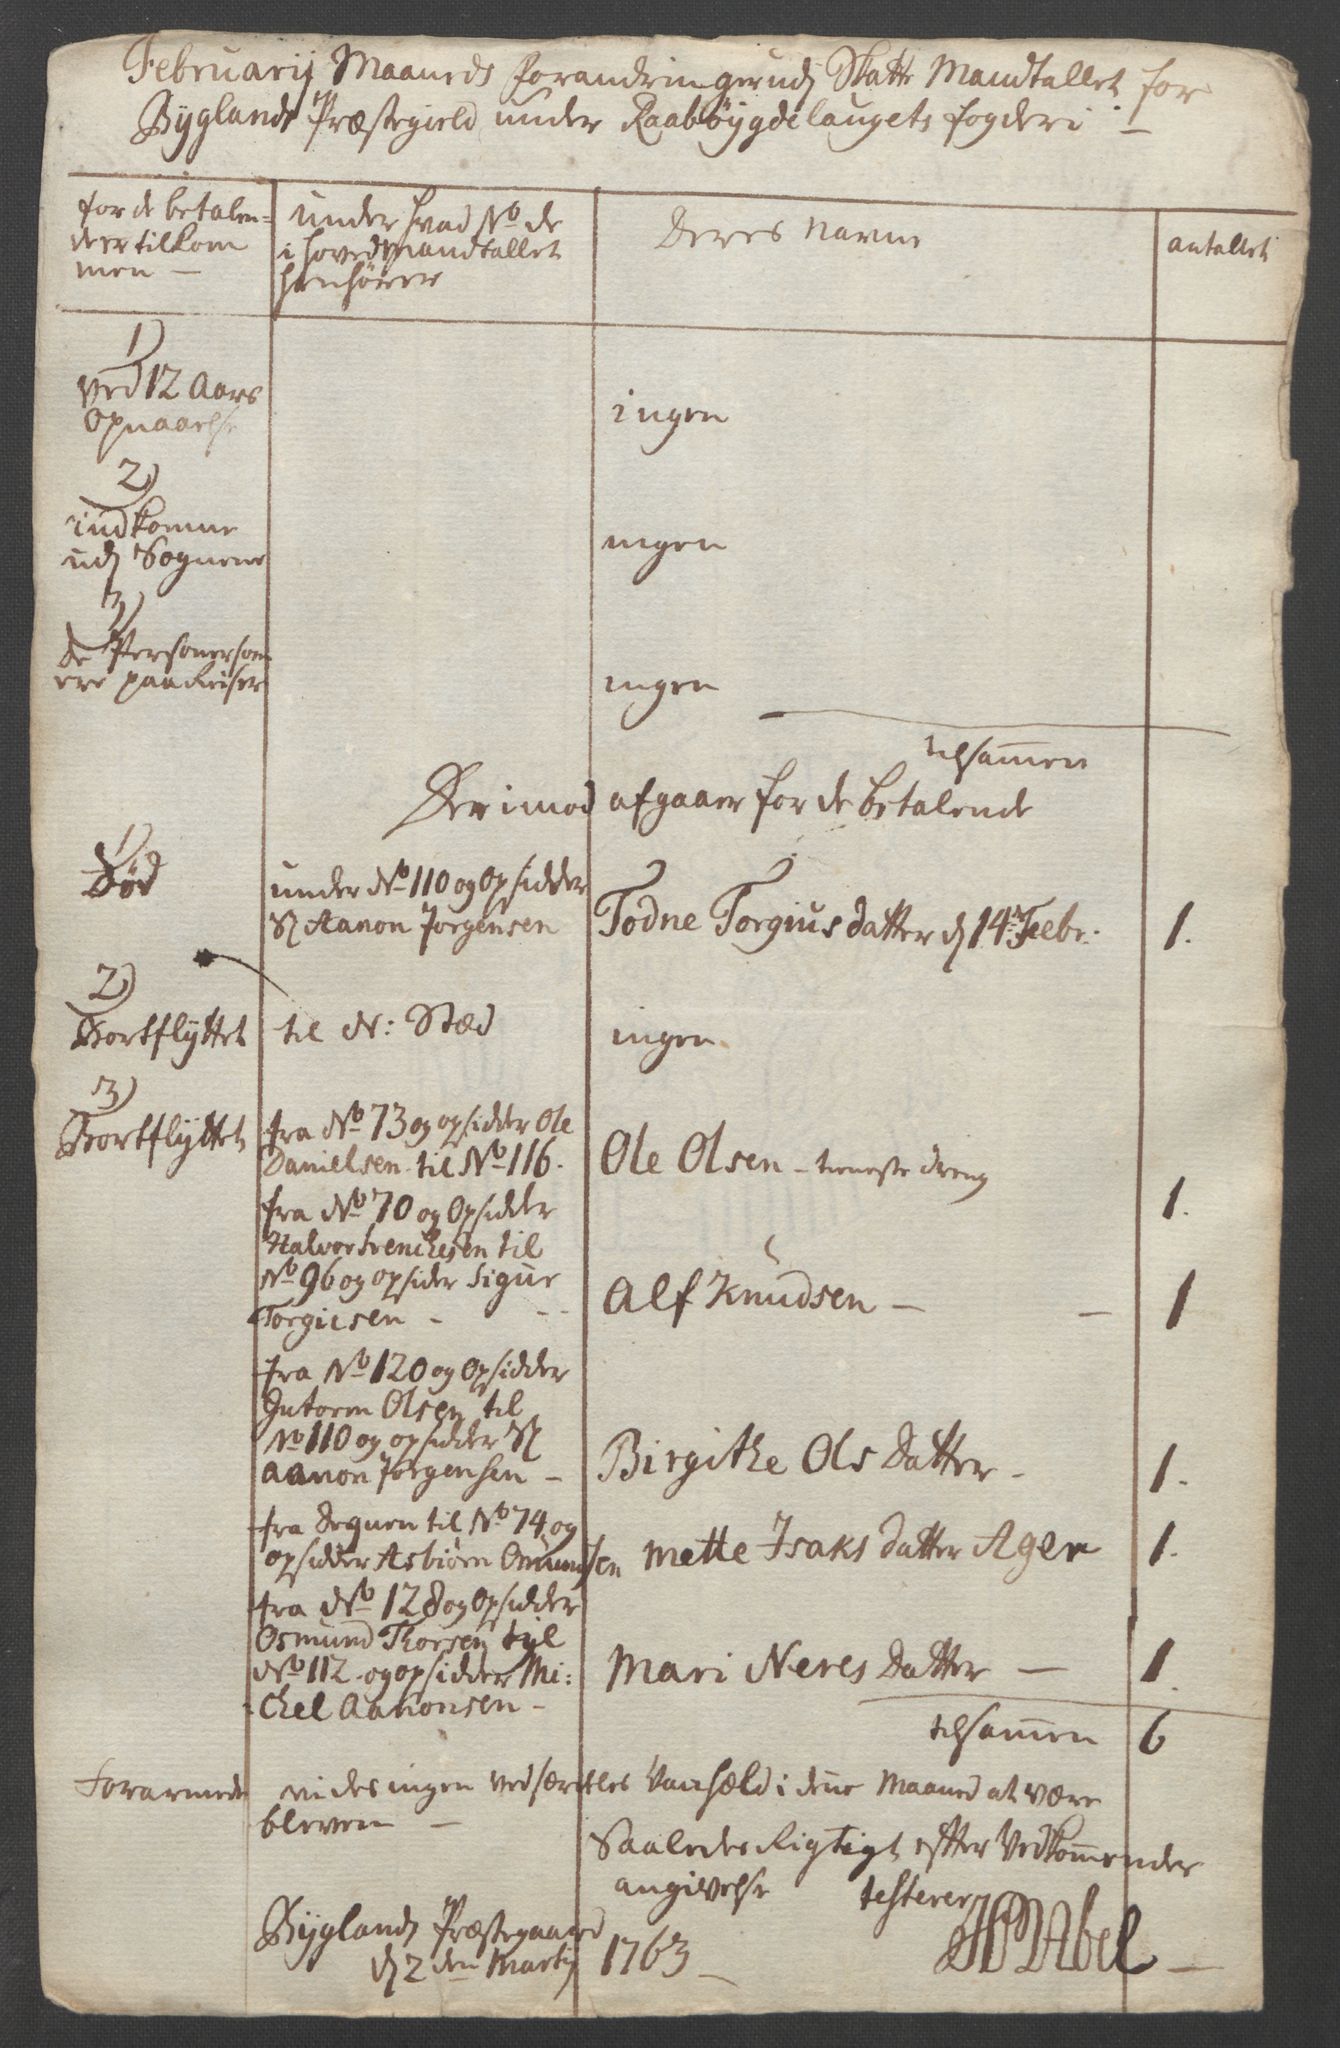 Februarij Maaneds Forandringer udj Skatte Mandtallet for
Byglands Præstegield under Raabøygdelaugets fogderi
for de betalen-
de er tilkom
men —
under hvad No de
i hovedmandtallet
henhører
Deres Navne
antallet
1)
Ved 12 Aars
Opnaaelse
ingen
2)
indkomne
udj Sognene
ingen
3)
de Personer som
ere paa Reiser
ingen
tilsamen
Derimod afgaaer for de betalende
1)
Død
under No 110 og Opsidder
Sr Aanon Jorgensen
Todne Torgius datter d 14 Febr.
1.
2)
Bortflyttet
til N: Stæd
ingen
3)
Bortflyttet
fra No 73 og opsidder Ole
Danielsen til No 116.
Ole Olsen - tieneste dreng
1.
fra No 70 og Opsidder
Halvor Svenchesen til
No 96 og opsider Sigur
Torgiesen - - -
Alf Knudsen — —
1
fra No 120 og Opsidder
Gutorm Olsen til
No 110 og opsidder Sr
Aanon Jørgensen -
Birgithe Ols Datter -
1.
fra Degnen til No 74 og
opsidder Asbiørn Osmundsen
Mette Isaks datter Ager
1.
fra No 128 og Opsidder
Osmund Thorsen tyl
No 112 og opsidder Mi:
chel Aanonsen -
Mari Neres Datter —
1.
tilsamen 6
Forarmede vides ingen ved særdeles Vanhæld i dene Maaned at være
bleven —
Saaledes Rigtigt efter Vedkommendes
angivelse testerer
Byglands Præstegaard
d 2den Martij 1763
HP Abel